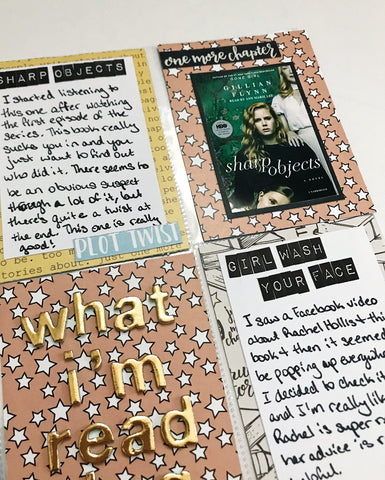 SHARP OBJECTS
I started listening to
this one after watching
the first episode of the
series. This book really
sucks you in and you
just want to find out
who did it. There seems to
be an obvious suspect
through a lot of it, but
there's quite a twist at
the end! This one is really
good!
PLOT TWIST
one more chapter
GONE GIRL
GILLIAN
FLYNN
READ BY ANN MARIE LEE
HBO
sharp objects
A NOVEL
UNABRIDGED
what
i'm
read
GIRL WASH
YOUR FACE
I saw a Facebook video
about Rachel Hollis + this
book + then it seemed
be popping up everywhere
I decided to check it
and I'm really lik
Rachel is super r
her advice is
helpful.